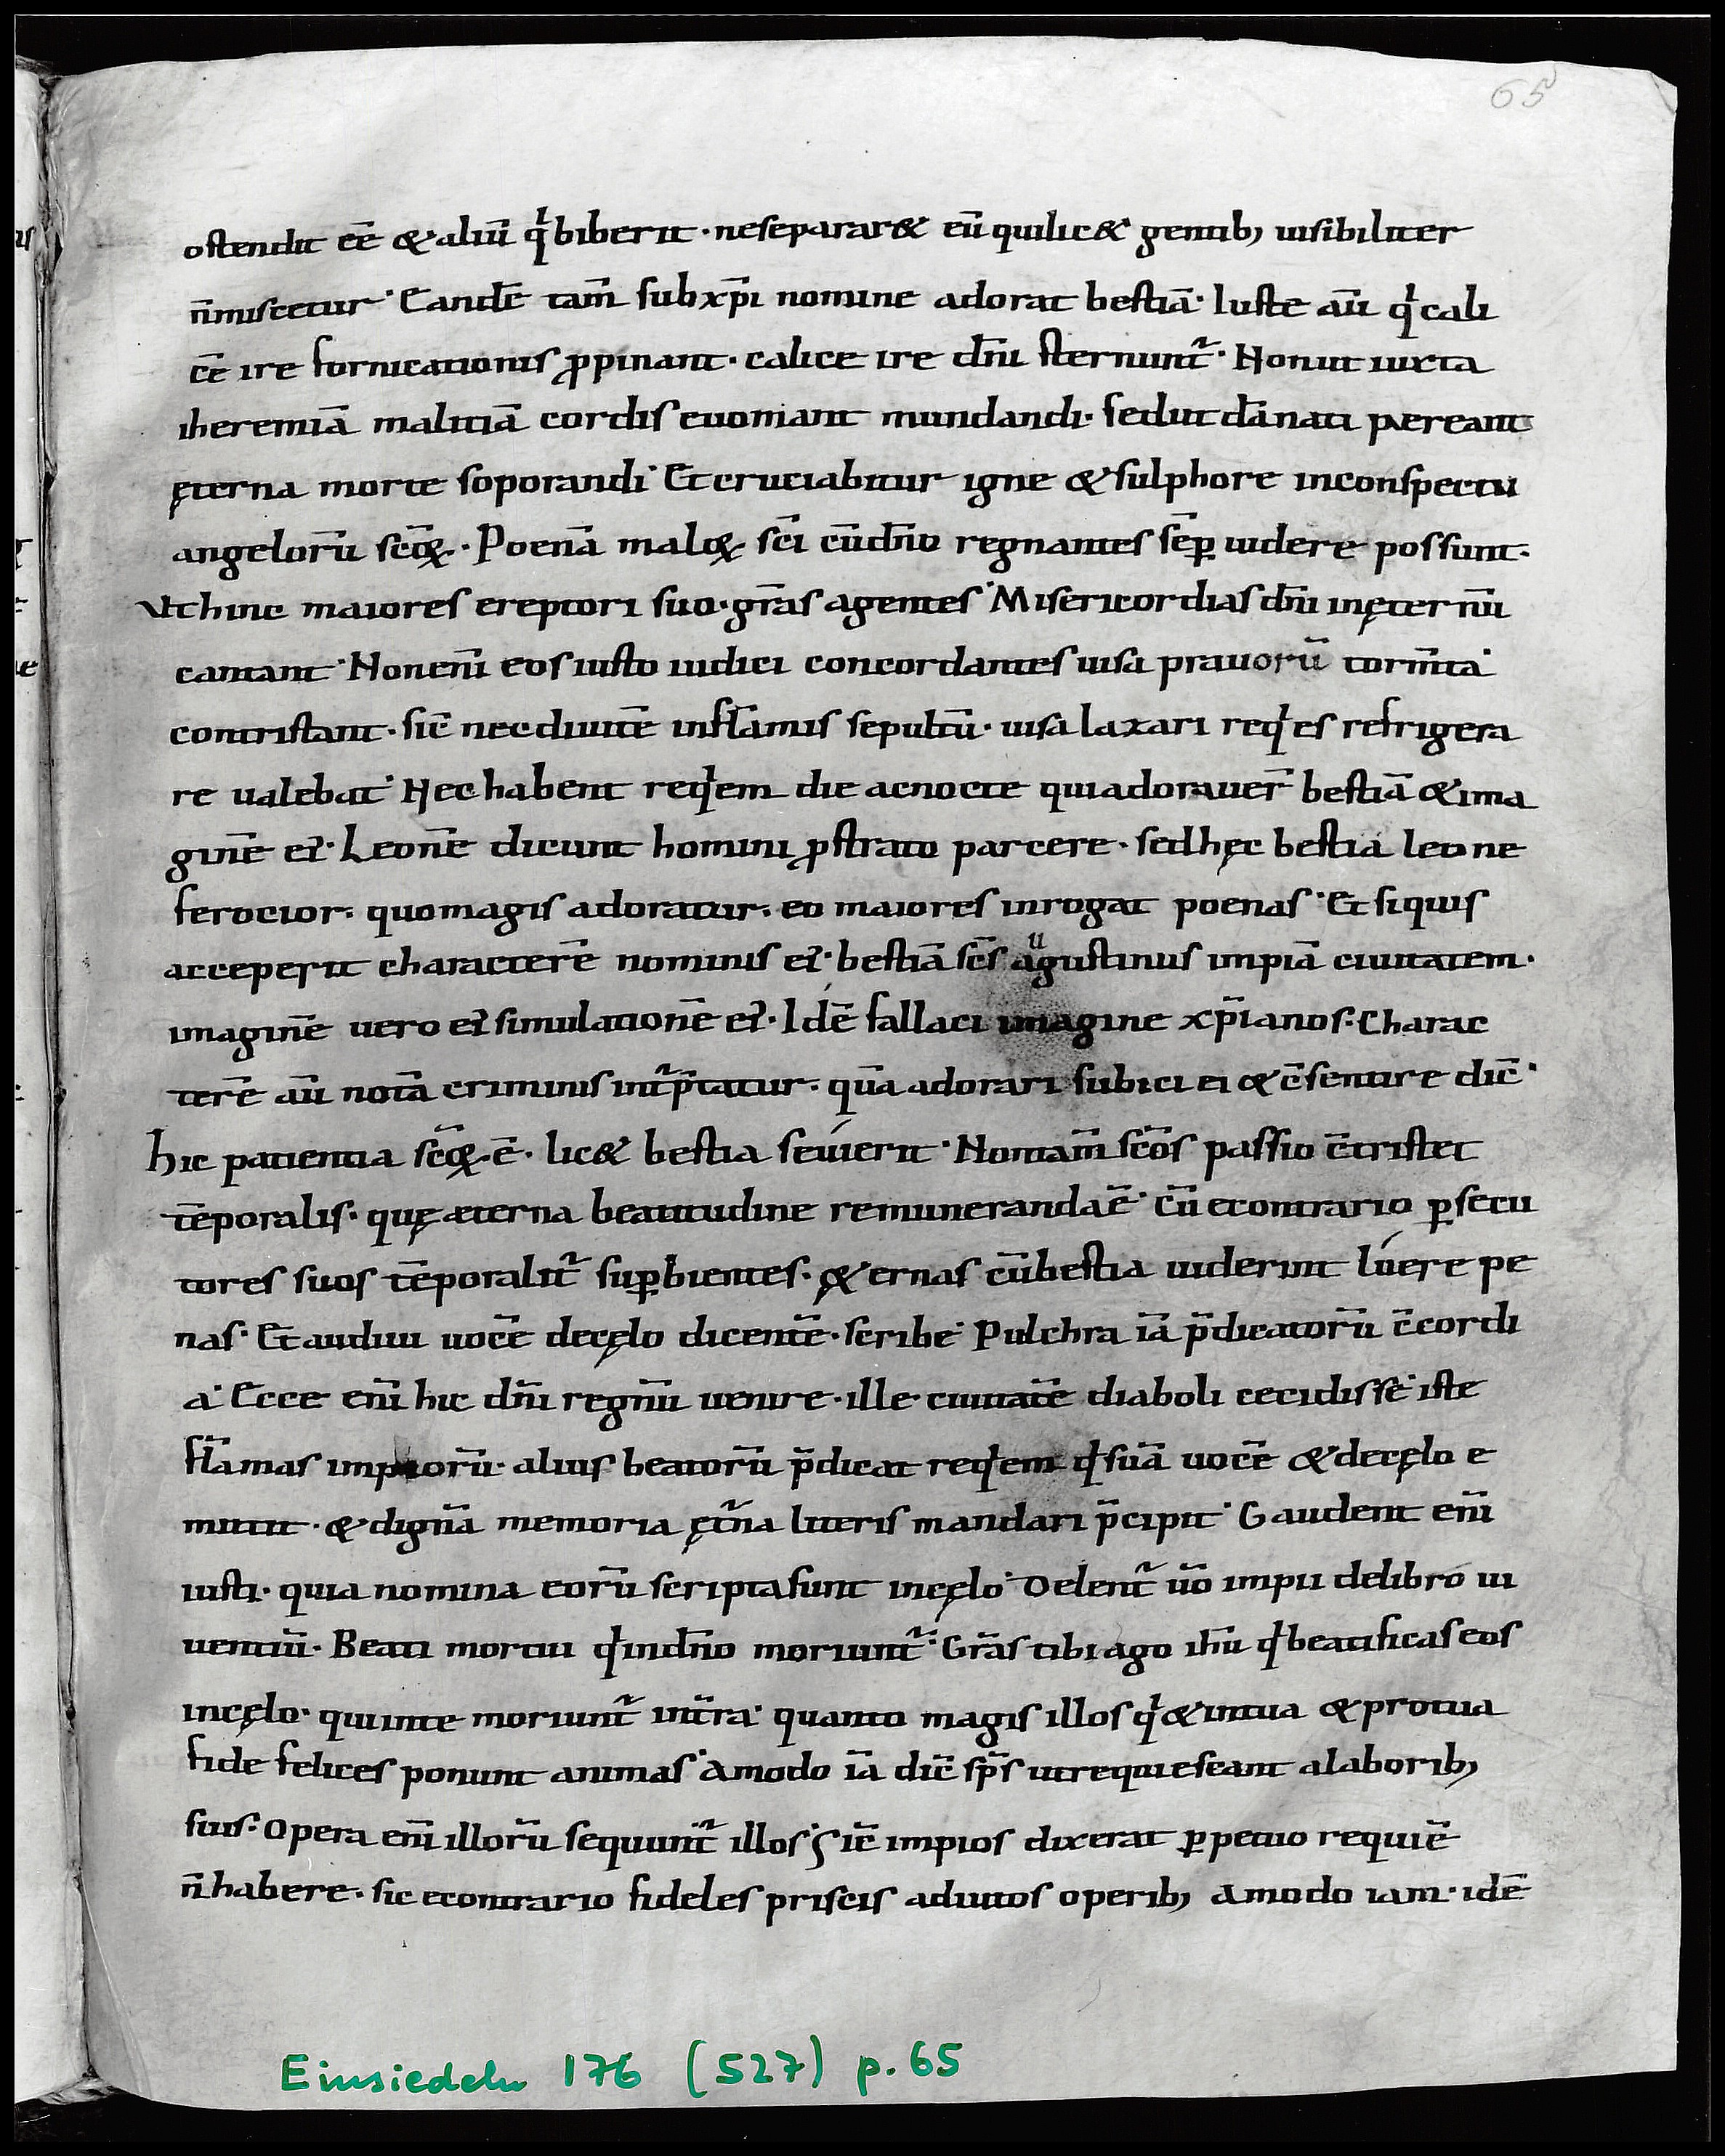 65
ostendit eē & aliū q̇ biberit · ne separar& eū qui lic& gentib; uisibiliter
n̄ miscetur · Eandē tam̄ sub xp̄i nomine adorat bestiā · Iuste aū q̇ cali
cē ire fornicationis ꝓpinant · calice ire dn̄i sternunt᷑ · Non ut iuxta
iheremiā malitiā cordis euomant mundandi · sed ut dānati pereant
ęterna morte soporandi · Et cruciabitur igne & sulphore in conspectu
angelorū sc̄oꝝ · Poenā maloꝝ sc̄i cū dn̄o regnantes sēꝑ uidere possunt ·
Vt hinc maiores ereptori suo · gr̄as agentes · Misericordias dn̄i in ęternū
cantant · Non eni̅ eos iusto iudici concordantes uisa prauorū torm̄ta
contristant · sic̄ nec diuitē in flāmis sepultū · uisa laxari req̇es refrigera
re ualebat · Nec habent req̇em die ac nocte qui adorauer̄ bestiā & ima
ginē ei᷒ · Leonē dicunt homini ꝓstrato parcere · sed hęc bestia leone
ferocior · quo magis adoratur · eo maiores inrogat poenas · Et si quis
acceperit characterē nominis ei᷒ · bestiā sc̄s agustinus impiā ciuitatem ·
u
imaginē uero ei᷒ simulationē ei᷒ · Idē fallaci imagine xp̄ianos · Charac
terē aū notā criminis int᷑p̄tatur · quā adorari subici ei & c̄sentire dic̄ ·
hic patientia sc̄oꝝ ē · lic& bestia seuierit · Non tam̄ sc̄os passio c̄tristet
tēporalis · quę æterna beatitudine remuneranda ē · cū econtrario ꝑsecu
tores suos tēporalit᷑ suꝑbientes · ę&ernas cū bestia uiderint luere pe
nas · Et audiui uocē de cęlo dicentē · scribe · Pulchra iā p̄dicatorū c̄cordi
a · Ecce eni̅ hic dn̄i regnū uenire · ille ciuitatē diaboli cecidisse · iste
flāmas impiorū · alius beatorū p̄dicat req̇em q̇ suā uocē & de cęlo e
mittit · & dignā memoria ęt᷑na litteris mandari p̄cipit · Gaudent eni̅
iusti · quia nomina eorū scripta sunt in cęlo · Delent᷑ ūo impii de libro ui
uentiū · Beati mortui q̇ in dn̄o moriunt᷑ · Gr̄as tibi ago ih̄u q̇ beatificas eos
in cęlo · qui in te moriunt᷑ in t̄ra · quanto magis illos q̇ & in tua & pro tua
fide felices ponunt animas · Amodo iā dic̄ sp̄s ut requiescant a laborib;
suis · Opera eni̅ illorū sequunt᷑ illos · Sic̄ impios dixerat ꝑpetuo requiē
n̄ habere · sic econtrario fideles priscis adiutos operib; Amodo iam · idē
Einsiedeln 176 (527) p. 65